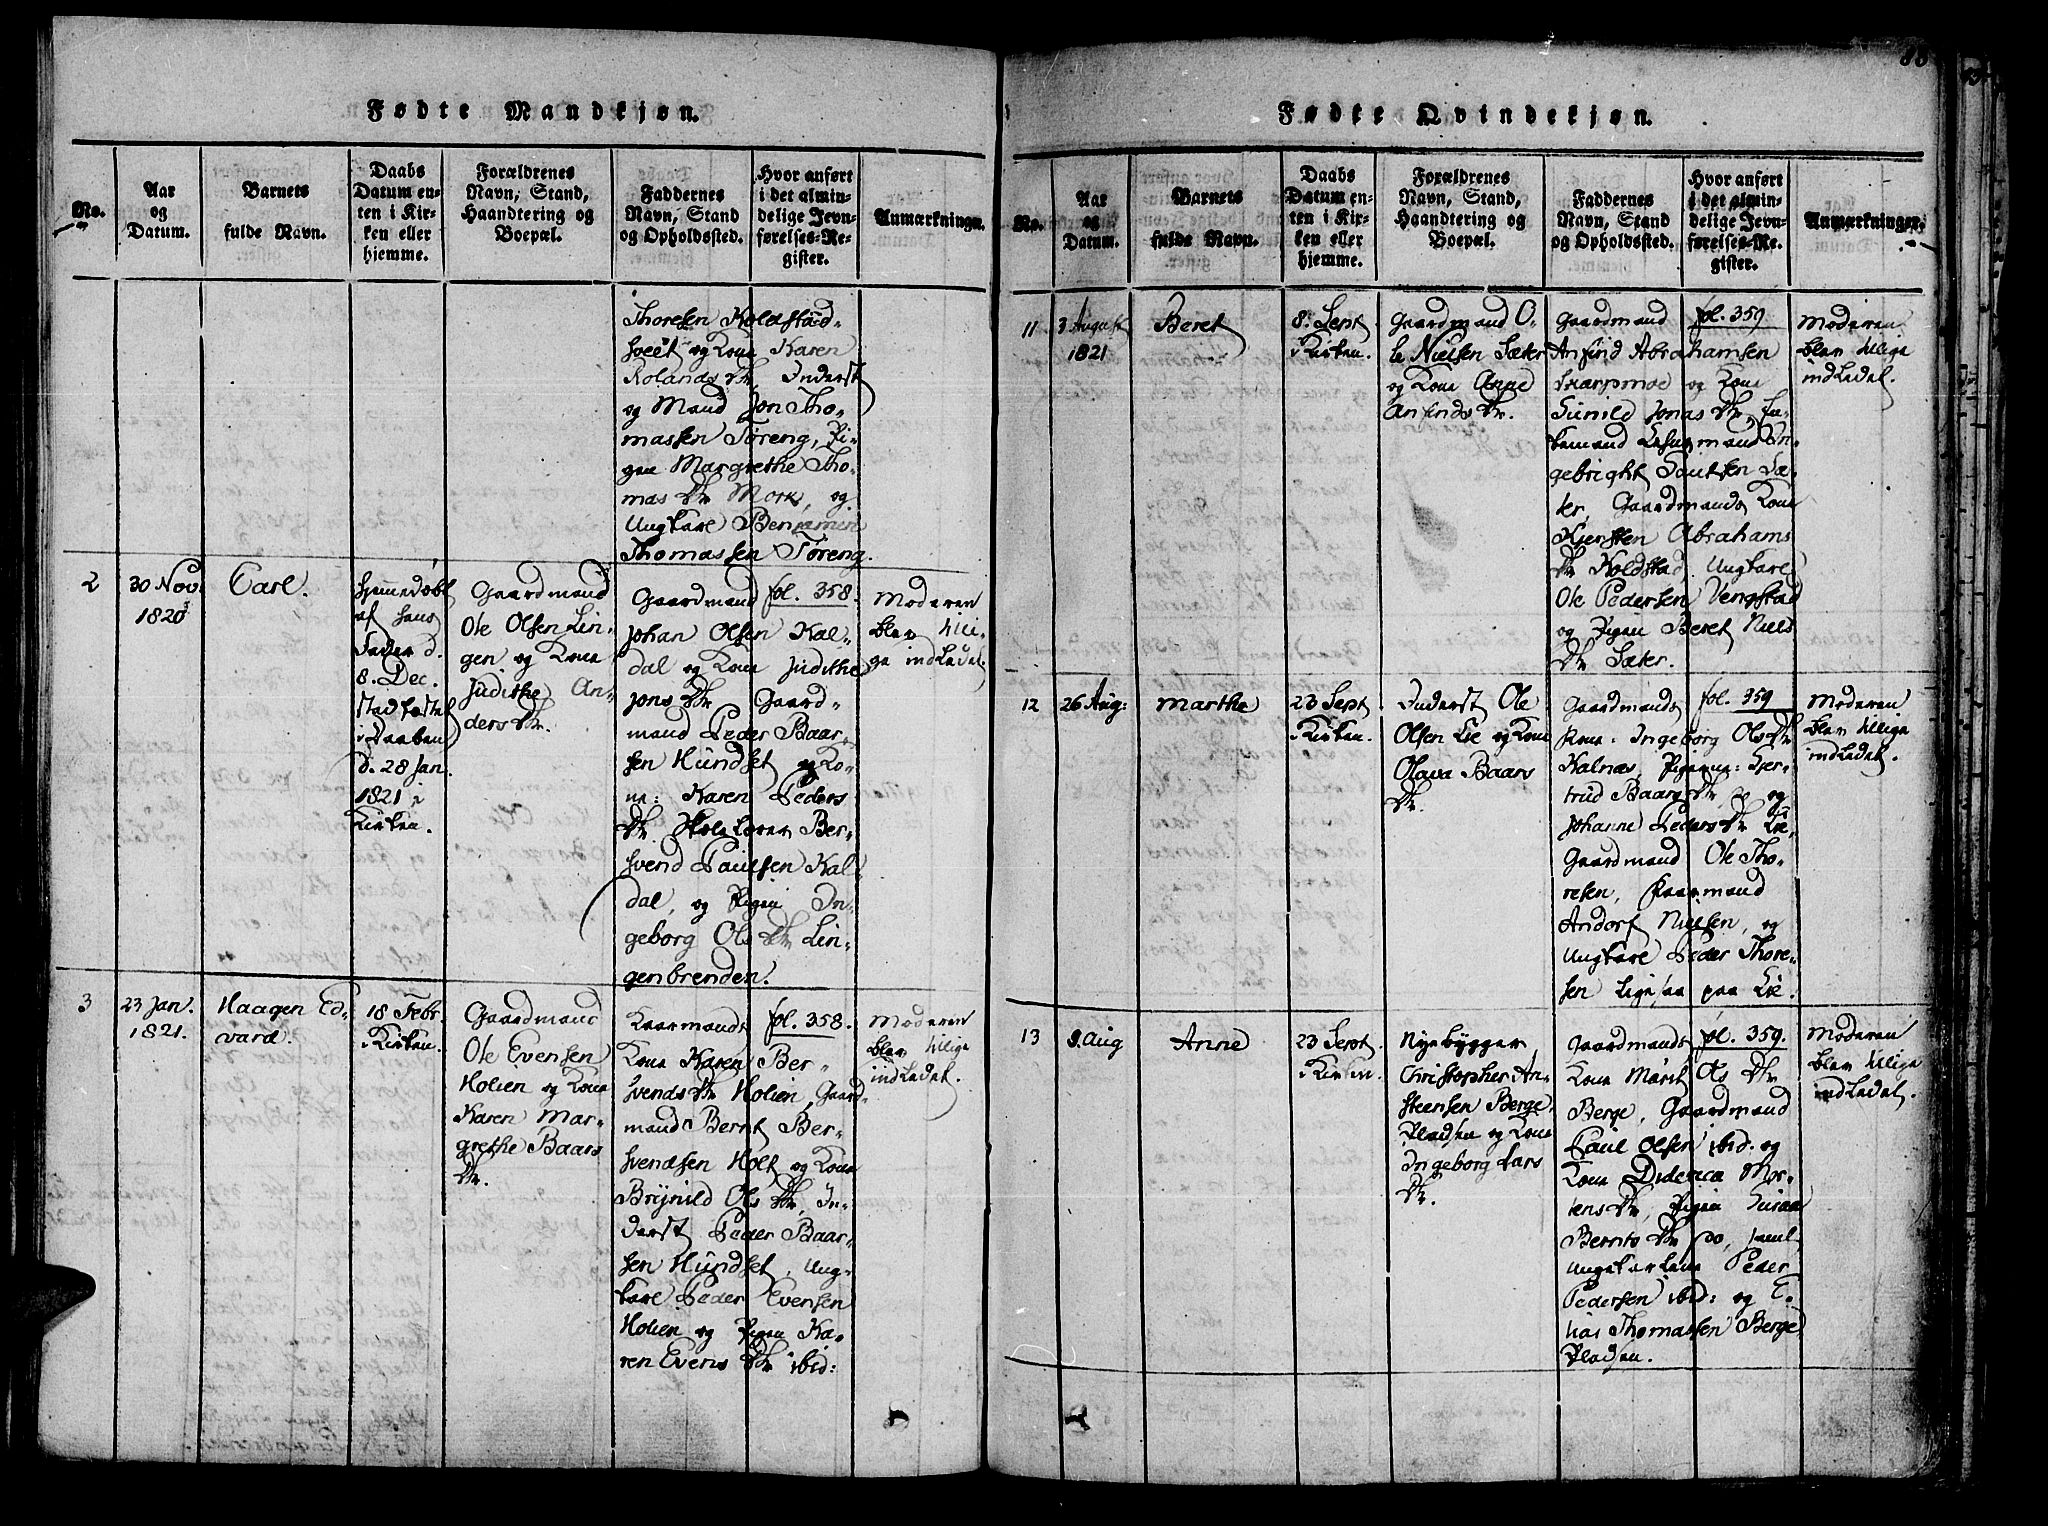 Fødte Mandkjøn.
No.
Aar
og
Datum.
Barnets
fulde Navn.
Daabs
Datum en-
ten i Kir-
ken eller
hjemme.
Forældrenes
Navn, Stand,
Haandtering og
Boepæl.
Faddernes
Navn, Stand
og Opholdssted.
Hvor anført
i det almin-
delige Jevn-
førelses-Re-
gister.
Anmærkninger.
Thoresen Koldstad-
sveet og Kone Karen
Rolands Dtr, Inderst
og Mand Jon Tho-
massen Tøreng, Pi-
gen Margrethe Tho-
mas Dtr Mork, og
Ungkarl Benjamin
Thomassen Tøreng.
2
30 Nov.
1820
Carl.
Hjemmedøbt
af hans
Fader d.
8. Dec.
stadfæstet
i Daaben
d. 28 Jan.
1821 i
Kirken.
Gaardmand
Ole Olsen Lin-
gen og Kone
Judithe An-
ders Dtr.
Gaardmand
Johan Olsen Kal-
dal og Kone Judithe
Jons Dtr Gaard-
mand Peder Baar-
sen Hundset og Ko-
ne: Karen Peders
Dtr Ber-
svend Paulsen Kal-
dal, og Pigen In-
geborg Ols Dtr Lin-
genbrenden.
fol. 358.
Moderen
blev tilli-
ge indledet.
3
23 Jan.
1821.
Haagen Ed-
vard.
18 Febr.
i Kirken.
Gaardmand
Ole Evensen
Holien og Kone
Karen Mar-
grethe Baars
Dtr.
Gaardmands
Kone Karen Ber-
svends Dtr Holien, Gaard-
mand Bernt Ber-
svendsen Holt og Kone
Brynild Ols Dtr, In-
derst Peder Baar-
sen Hundset, Ung-
karl Peder Evensen
Holien og Pigen Ka-
ren Evens Dtr ibid:
fol. 358.
Moderen
blev tillige
indledet.
Fødte Qvindekjøn.
No.
Aar
og
Datum.
Barnets
fulde Navn.
Daabs
Datum en-
ten i Kir-
ken eller
hjemme.
Forældrenes
Navn, Stand,
Haandtering og
Boepæl.
Faddernes
Navn, Stand
og Opholdssted.
Hvor anført
i det almin-
delige Jevn-
førelses-Re-
gister.
Anmærkninger.
11
3 August
1821
Beret
8. Sept
i Kirken.
Gaardmand O-
le Nielsen Sæter
og Kone Anne
Anfinds Dtr.
Gaardmand
Anfind Abrahamsen
Skarpmoe og Kone
Gunild Jonas Dtr, En-
kemand In-
gebright Sæ-
ter, Gaardmands Kone
Kjersten Abrahams
Dtr Koldstad, Ungkarl
Ole Pedersen Vengstad
og Pigen Beret Niels
Dtr Sæter.
fol. 359
Moderen
blev tillige
indledet.
12
26 Aug:
Marthe
23 Sept
i Kirken.
Inderst Ole
Olsen Lie og Kone
Olava Baars
Dtr.
Gaardmands
Kone Ingeborg Ols Dtr
Kalnæs, Pigerne: Gjer-
trud Baars Dtr, og
Johanne Peders Dtr Lie,
Gaardmand Ole Tho-
resen, Kaarmand
Andorf Nielsen, og
Ungkarl Peder Thore-
sen ligesaa paa Lie.
fol. 359
Moderen
blev tillige
indledet.
13
9. Aug
Anne
23 Sept.
i Kirken.
Nyebygger
Christopher An-
steensen Berge-
Pladsen og Kone
Ingeborg Lars
Dtr.
Gaardmands
Kone Marit Ols Dtr
Berge, Gaardmand
Paul Olsen ibid. og
Kone Diderica Mor-
tens Dtr, Pigen
Bernts Dtr do, samt
Ungkarlene Peder
Pedersen ibid: og E-
lias Thomassen Berge
Pladsen.
fol. 359.
Moderen
blev tillige
indledet.